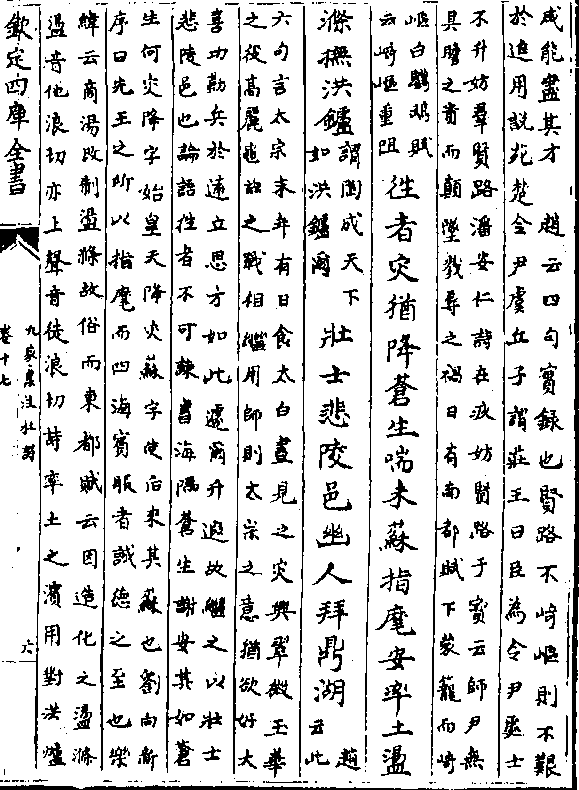 咸能盡其才　趙云四句實録也賢路不崎嶇則不艱
於進用説苑楚令尹虞丘子謂莊王曰臣為令尹處士
不升妨羣賢路潘安仁詩在疚妨賢路于寳云師尹無
具瞻之貴而顛墜戮辱之禍日有南都賦下蒙籠而崎
嶇白鸚鵡賦
云崎嶇重阻
往者災猶降蒼生喘未蘇指麾安率土盪
滌撫洪鑪
謂陶成天下
如洪鑪爾
壯士悲陵邑幽人拜鼎湖
趙
云此
六句言太宗末年有日食太白晝見之災興翠微玉華
之役髙麗龜兹之戰相繼用師則太宗之意猶欲好大
喜功勤兵於逺立思方如此遽爾升遐故繼之以壯士
悲陵邑也論語往者不可諫書海隅蒼生謝安其如蒼
生何災降字始皇天降災蘇字徯后來其蘇也劉向新
序曰先王之所以指麾而四海賓服者誠德之至也樂
緯云商湯改制盪滌故俗而東都賦云因造化之盪滌
盪音他浪切亦上聲音徒浪切詩率土之濱用對洪爐
欽定四庫全書
九家集注杜詩
卷十七
六